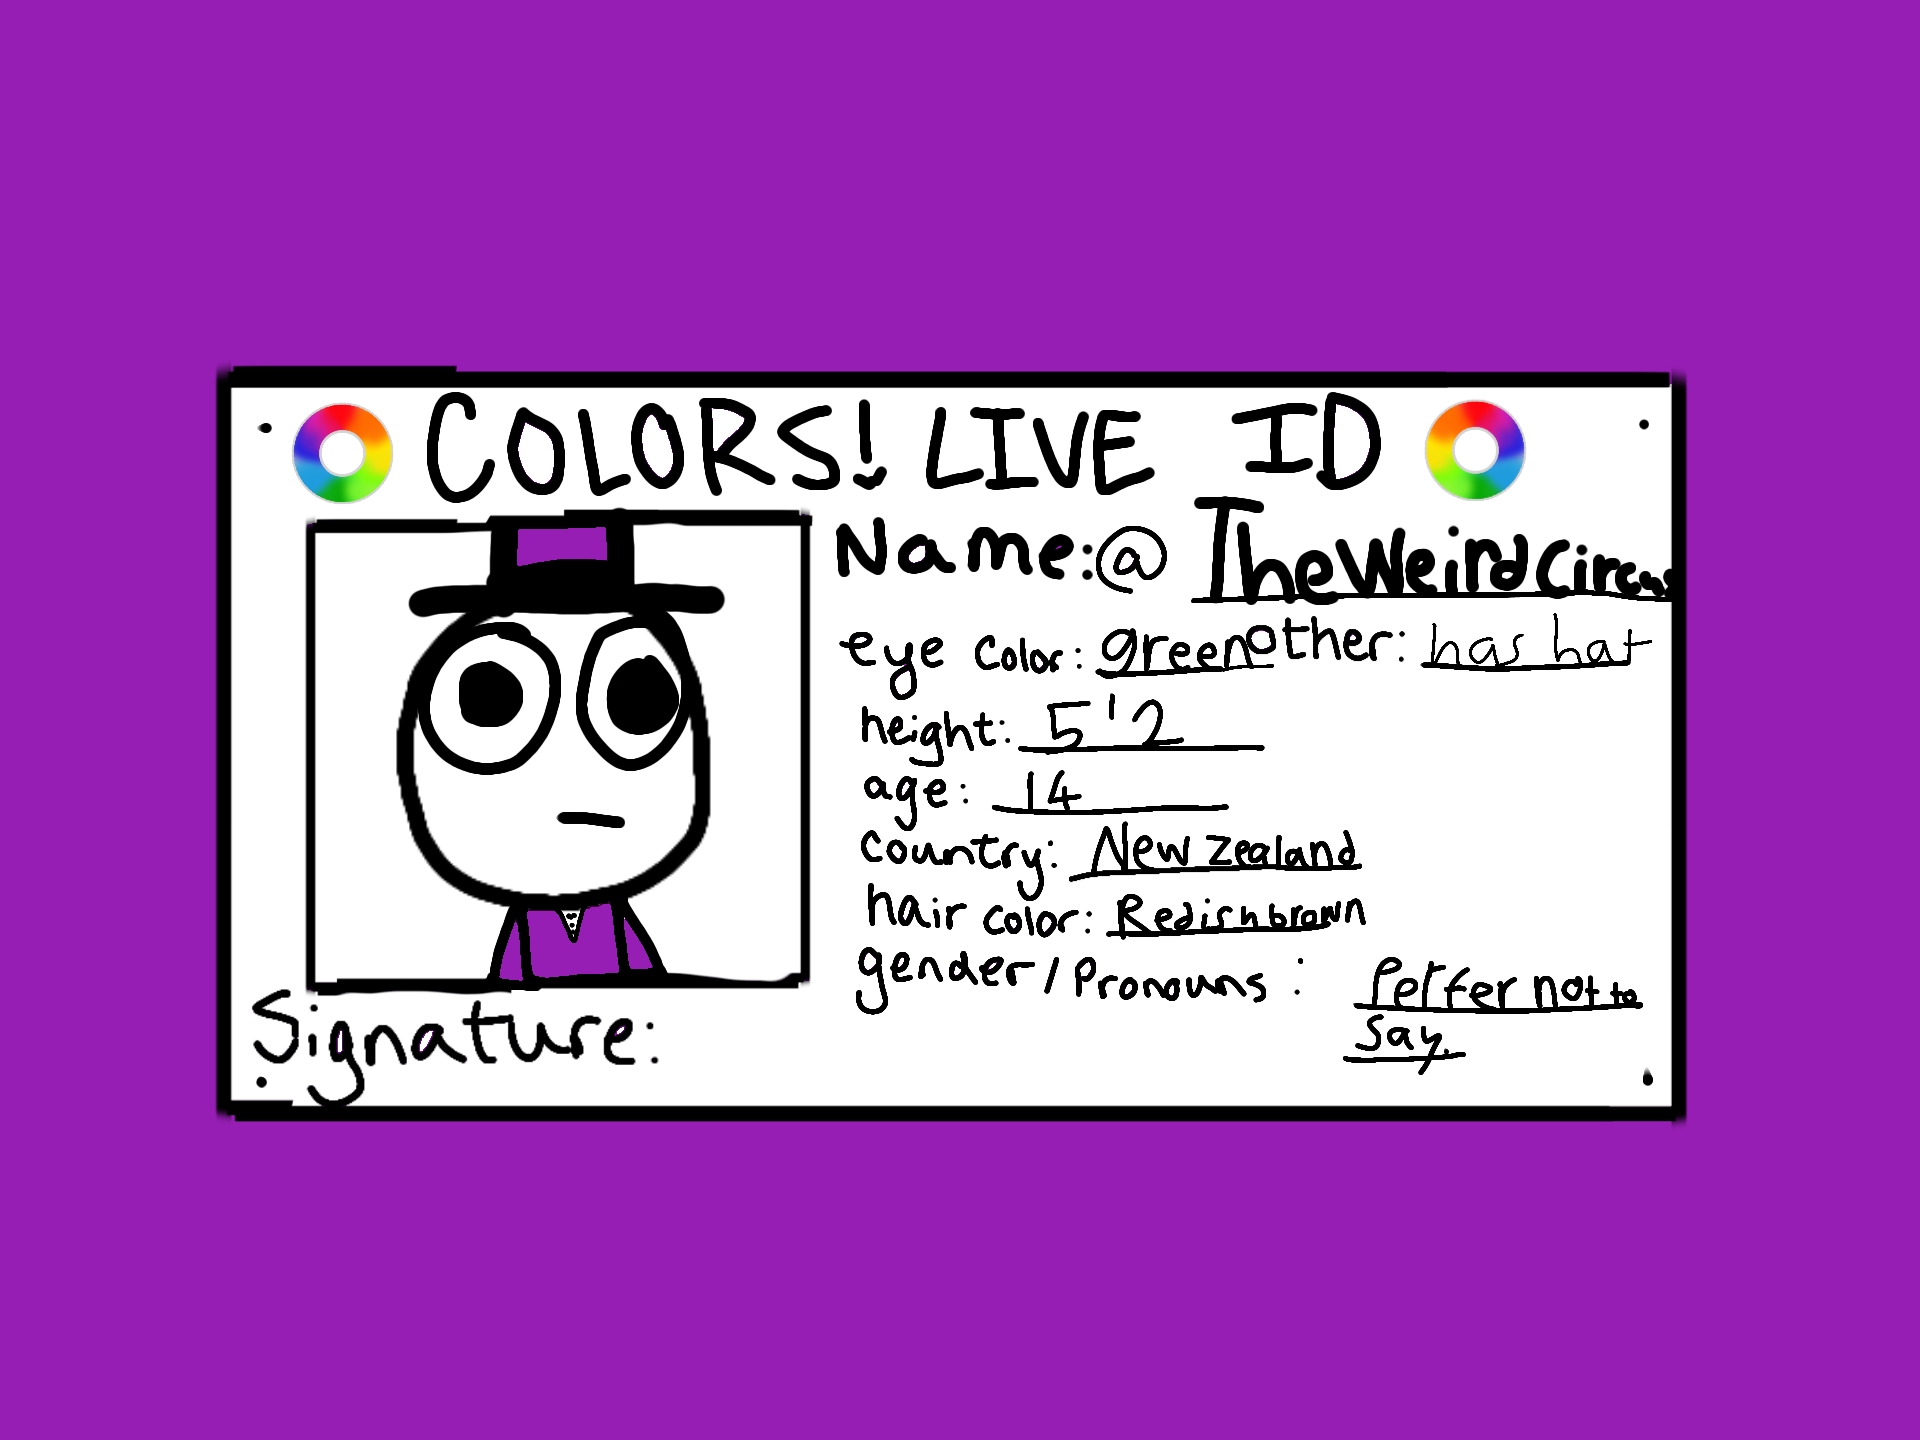 COLORS! LIVE ID
Name:@ TheWeirdCircus
eye color: green other: has hat
height: 5'2
age: 14
country: New Zealand
hair color: Redish brown
gender/Pronouns: Perfer not to
say.
Signature: